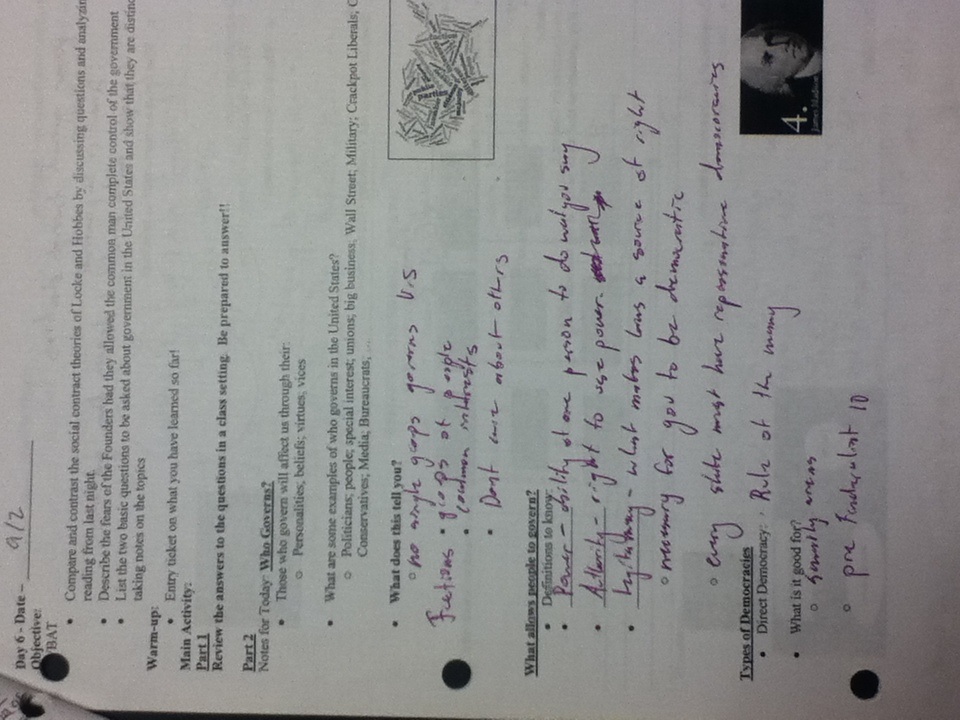 Day 6 - Date – 9/2
Objective:
BAT
• Compare and contrast the social contract theories of Locke and Hobbes by discussing questions and analyzin
reading from last night.
• Describe the fears of the Founders had they allowed the common man complete control of the government
• List the two basic questions to be asked about government in the United States and show that they are distinc
taking notes on the topics
Warm-up:
• Entry ticket on what you have learned so far!
Main Activity:
Part 1
Review the answers to the questions in a class setting. Be prepared to answer!!
Part 2
Notes for Today: Who Governs?
• Those who govern will affect us through their:
o Personalities; beliefs; virtues; vices
• What are some examples of who governs in the United States?
o Politicians; people; special interest; unions; big business, Wall Street; Military; Crackpot Liberals, C
Conservatives; Media; Bureaucrats, ...
• What does this tell you?
o no single groops governs U.S
Fuctions • groops of people
• common intrests
• Dont care about others
What allows people to govern?
• Definitions to know:
• Power – ability of one person to do what you say
• Authority – right to use power.
• Legitamacy – what makes laws a source of right
o necessary for you to be democratic
o every state must have democracies
Types of Democracies
• Direct Democracy: Rule of the many
• What is it good for?
o areas
o pre 10
4.
James Madison